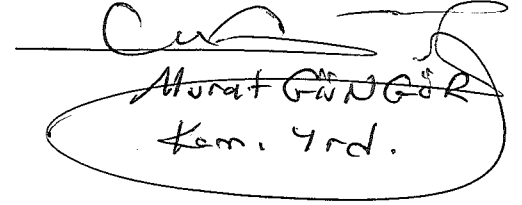 Murat GÜNGÖR
Kom. Yrd.